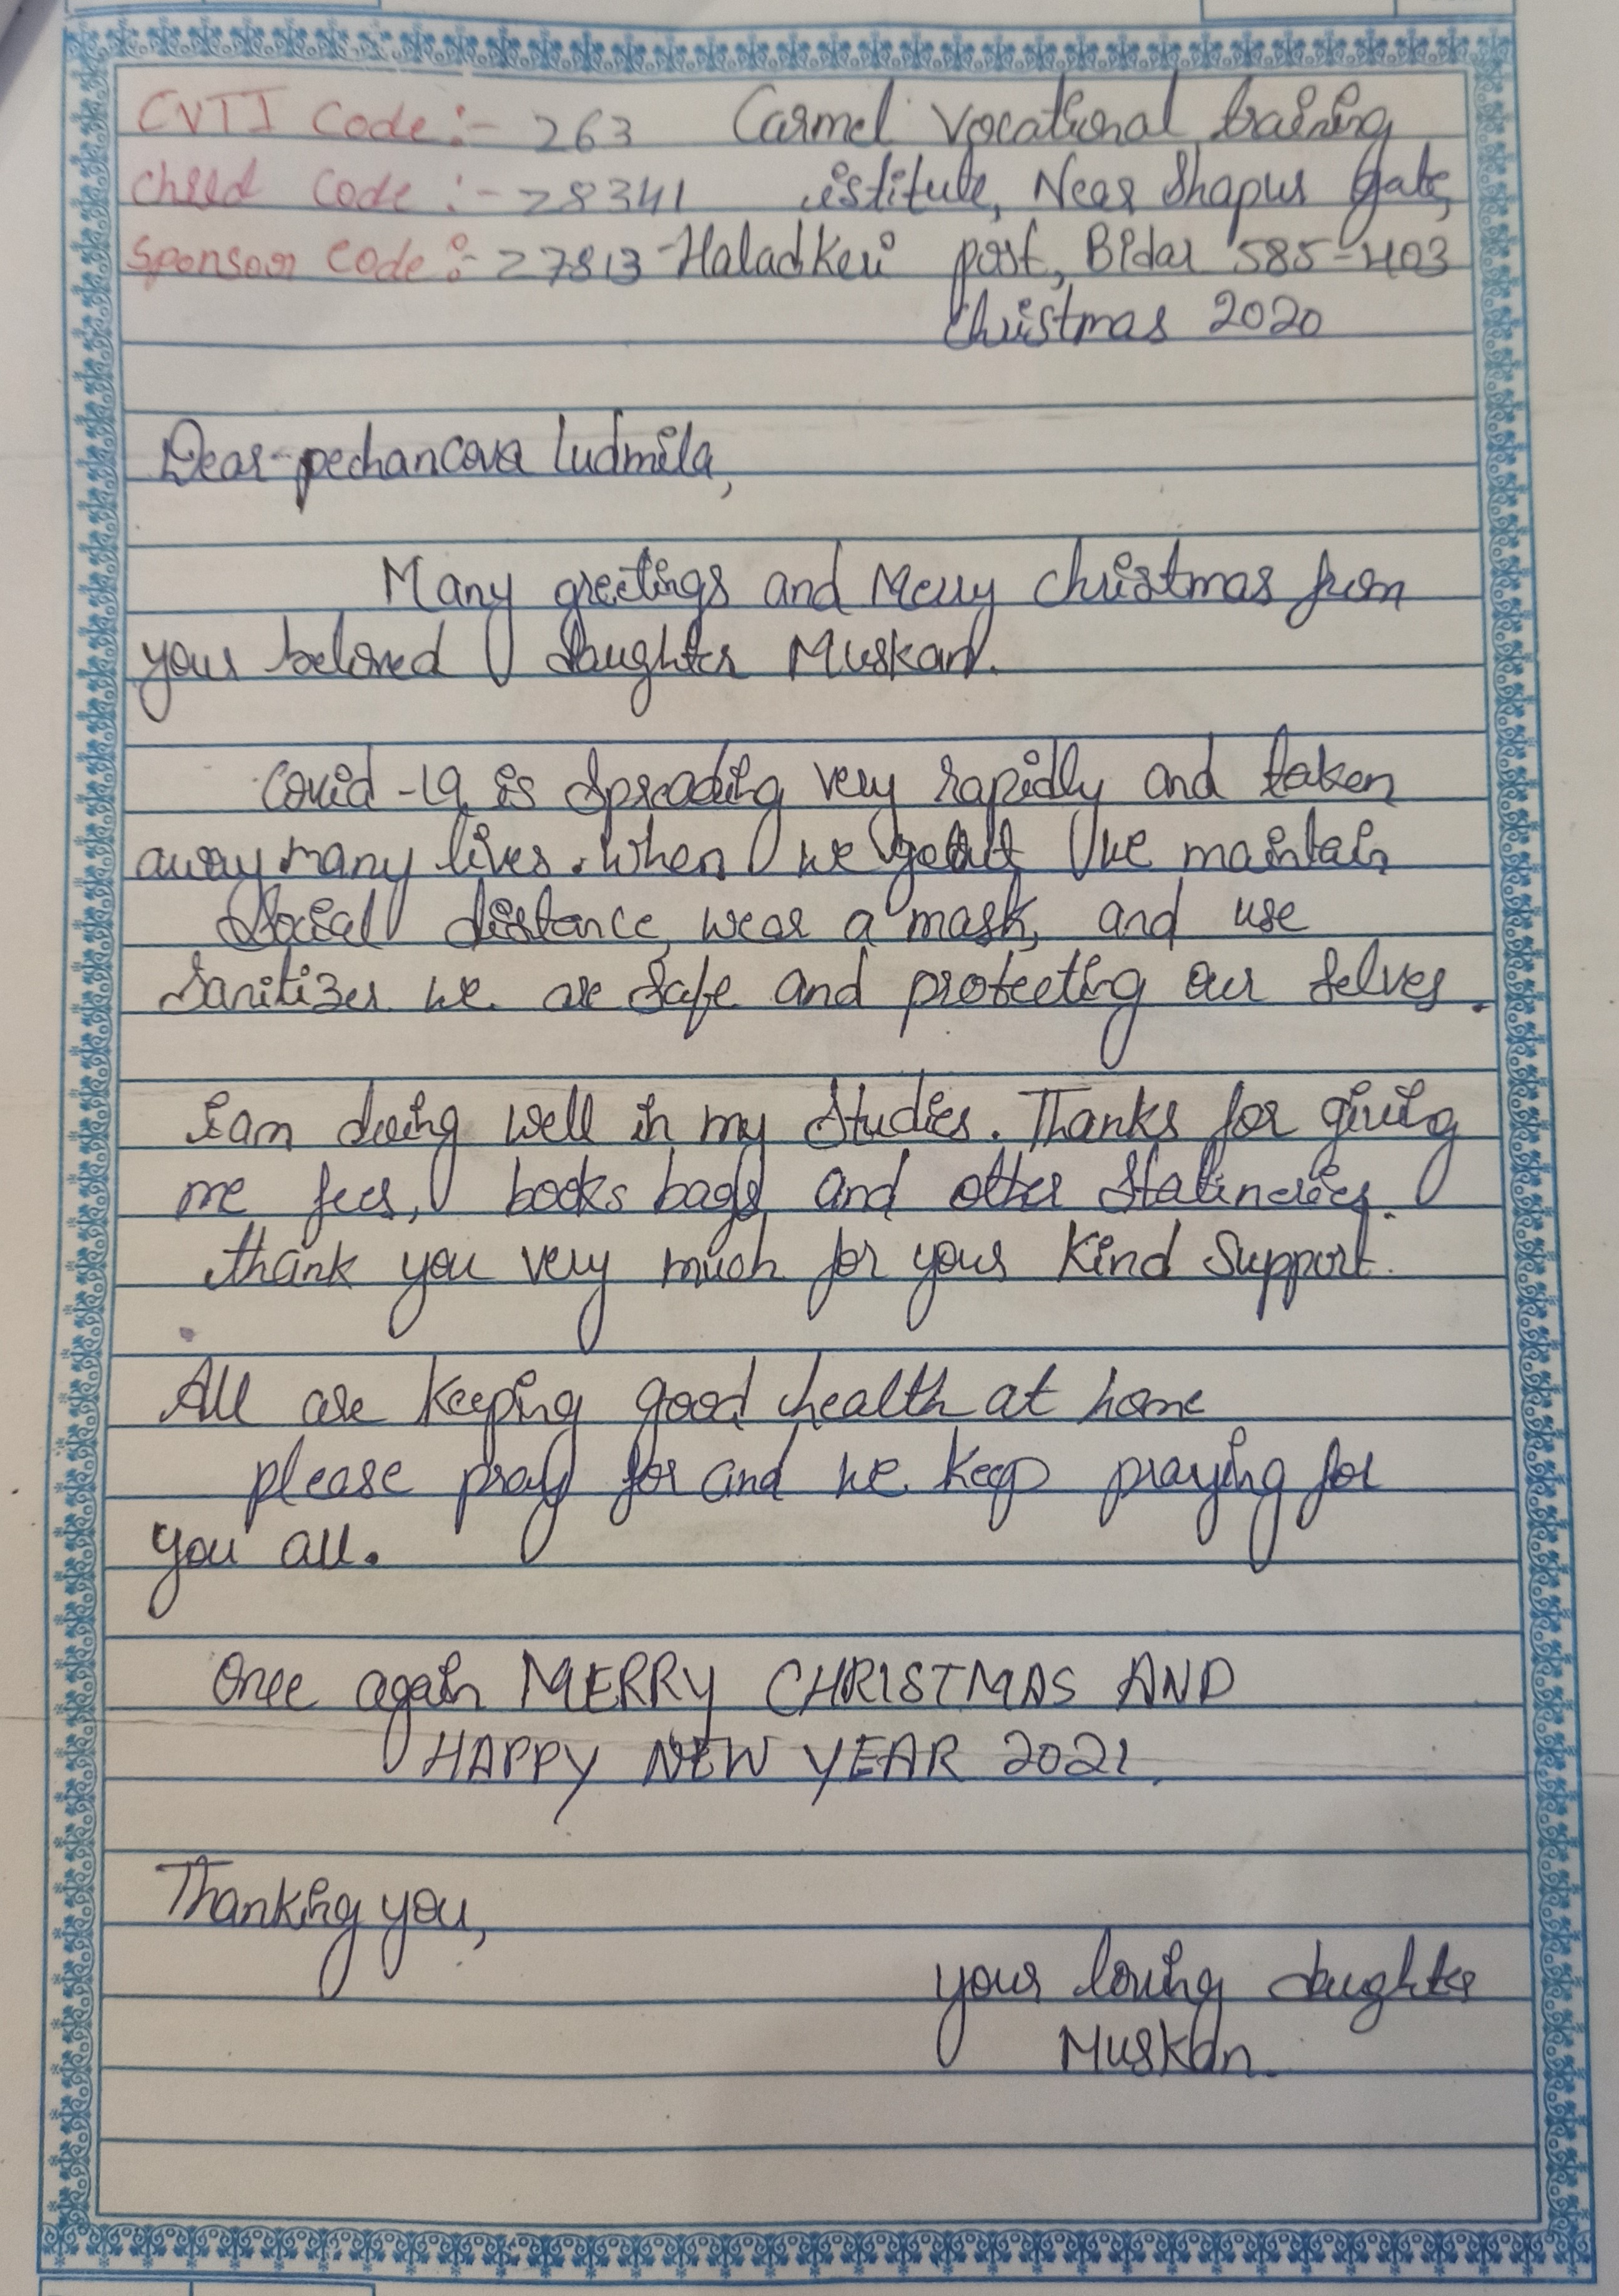 CVTI Code:- 263 Carmel Vocational training
Child Code:- 28341 istitute, Near Shapur Gate,
Sponsor Code:- 27813 Haladkeri post, Bidar 585-403
Christmas 2020
Dear pechancova ludmila,
Many greetings and Merry christmas from
your beloved daughter Muskan.
Covid-19 is spreading very rapidly and taken
away many lives. when we goout we maintain
Social distance, wear a mask, and use
Sanitizer we are safe and protecting our selves.
i am doing well in my studies. Thanks for giving
me fees, books bags and other
thank you very much for your kind Support.
All are keeping good health at home
please pray for and we keep praying for
you all.
Once again MERRY CHRISTMAS AND
HAPPY NEW YEAR 2021.
Thanking you,
your loving daughter
Muskan.